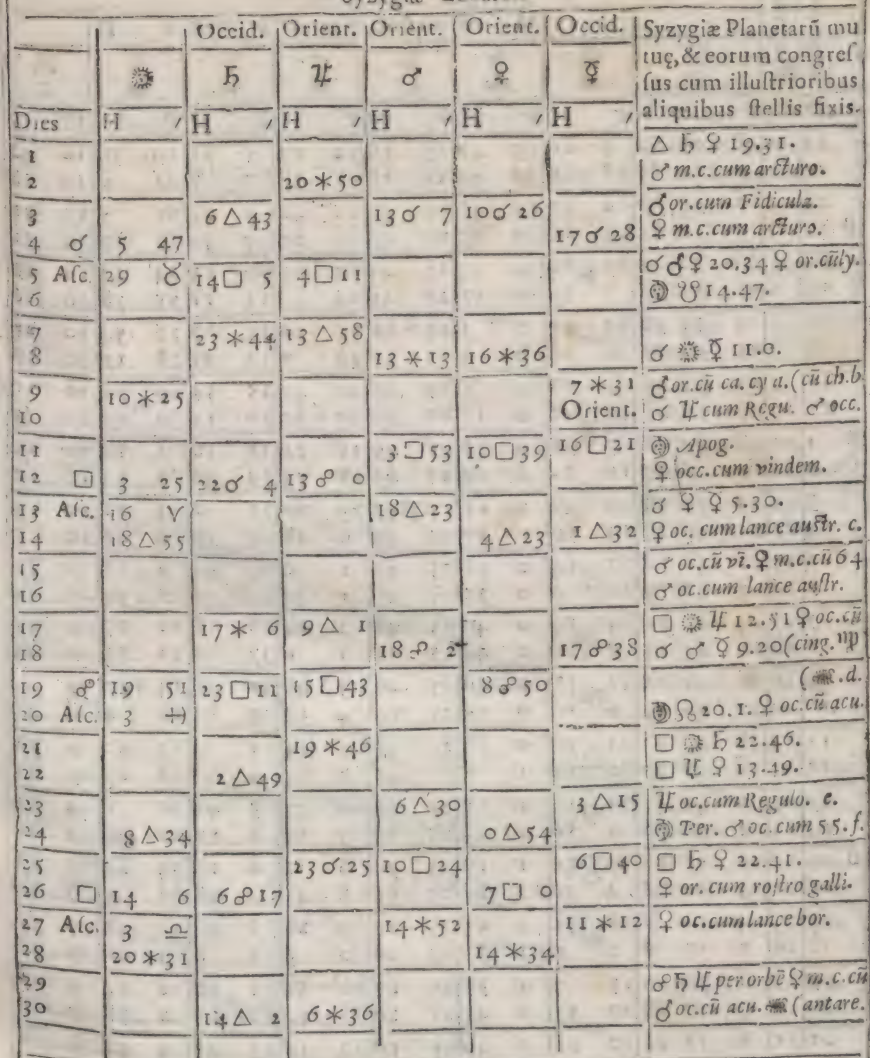 Occid. Orient. Orient. Orient. Occid. Syzygiæ Planetarũ mu
tuę, & eorum congreſ
☼ ♄ ♃ ♂ ♀ ☿ ſus cum illuſtrioribus
Dies H ′ H ′ H ′ H ′ H ′ H ′ aliquibus ſtellis fixis.
1 △ ♄ ♀ 19.31.
2 20 ⚹ 50 ♂ m.c.cum arcturo.
3 6 △ 43 13 ☌ 7 10 ☌ 26 ♂ or.cum Fidicula.
4 ☌ 5 47 17 ☌ 28 ♀ m.c.cum arcturo.
5 Aſc. 29 ♉ 14 □ 5 4 □ 11 ☌ ♂ ♀ 20.34 ♀ or.cũ ly.
6 ☋ 14.47.
7 23 ⚹ 44 13 △ 58
8 13 ⚹ 13 16 ⚹ 36 ☌ ☼ ☿ 11.0.
9 10 ⚹ 25 7 ⚹ 31 ♂ or.cũ ca. cy a. (cũ ch.b
10 Orient. ☌ ♃ cum Regu. ♂ occ.
11 3 □ 53 10 □ 39 16 □ 21 Apog.
12 □ 3 25 22 ☌ 4 13 ☍ 0 ♀ occ.cum vindem.
13 Aſc. 16 ♈ 18 △ 23 ☌ ♀ ☿ 5.30.
14 18 △ 55 4 △ 23 1 △ 32 ♀ oc. cum lance auſtr. c.
15 ♂ oc.cũ vi. ♀ m.c.cũ 64
16 ♂ oc.cum lance auſtr.
17 17 ⚹ 6 9 △ 1 □ ☼ ♃ 12.51 ♀ oc.cũ
18 18 ☍ 2 17 ☍ 38 ☌ ♂ ☿ 9.20 (cing. ♍
19 ☍ 19 51 23 □ 11 15 □ 43 8 ☍ 50 ( .d.
20 Aſc. 3 ♓ ☊ 20.1. ♀ oc.cũ acu.
21 19 ⚹ 46 □ ☼ ♄ 22.46.
22 2 △ 49 □ ♃ ♀ 13.49.
23 6 △ 30 3 △ 15 ♃ oc.cum Regulo. e.
24 8 △ 34 0 △ 54 Per. ♂ oc.cum 55.f.
25 23 ☌ 25 10 □ 24 6 □ 40 □ ♄ ♀ 22.41.
26 □ 14 6 6 ☍ 17 7 □ 0 ♀ or. cum roſtro galli.
27 Aſc. 3 ♎ 14 ⚹ 52 11 ⚹ 12 ♀ oc.cum lance bor.
28 20 ⚹ 31 14 ⚹ 34
29 ☍ ♄ ♃ per orbẽ ♀ m.c.cũ
30 14 △ 2 6 ⚹ 36 ♂ oc.cũ acu. (antare.